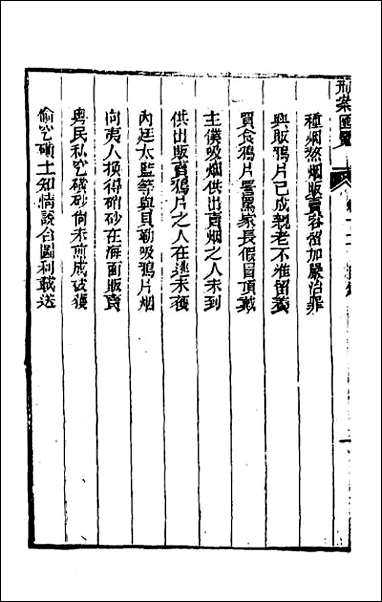 刑案匯覽
種烟熬烟販賣容留加嚴治罪
興販鴉片已成親老不准留養
買食鴉片詈罵家長假冒頂戴
主僕吸烟供出賣烟之人未到
供出販賣鴉片之人在逃未獲
內廷太監等與貝勒吸鴉片烟
向夷人換得硝砂在海面販賣
粵民私挖礦砂尚未煎成被獲
偷挖礦土知情說合圖利載送